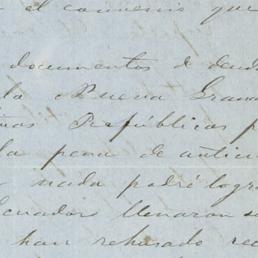 el convenio que
documentos de deud
la Nueva Grana
mas Repúblicas p
la pena de antici
nada podré logra
cuador llenaron su
han rehusado rec